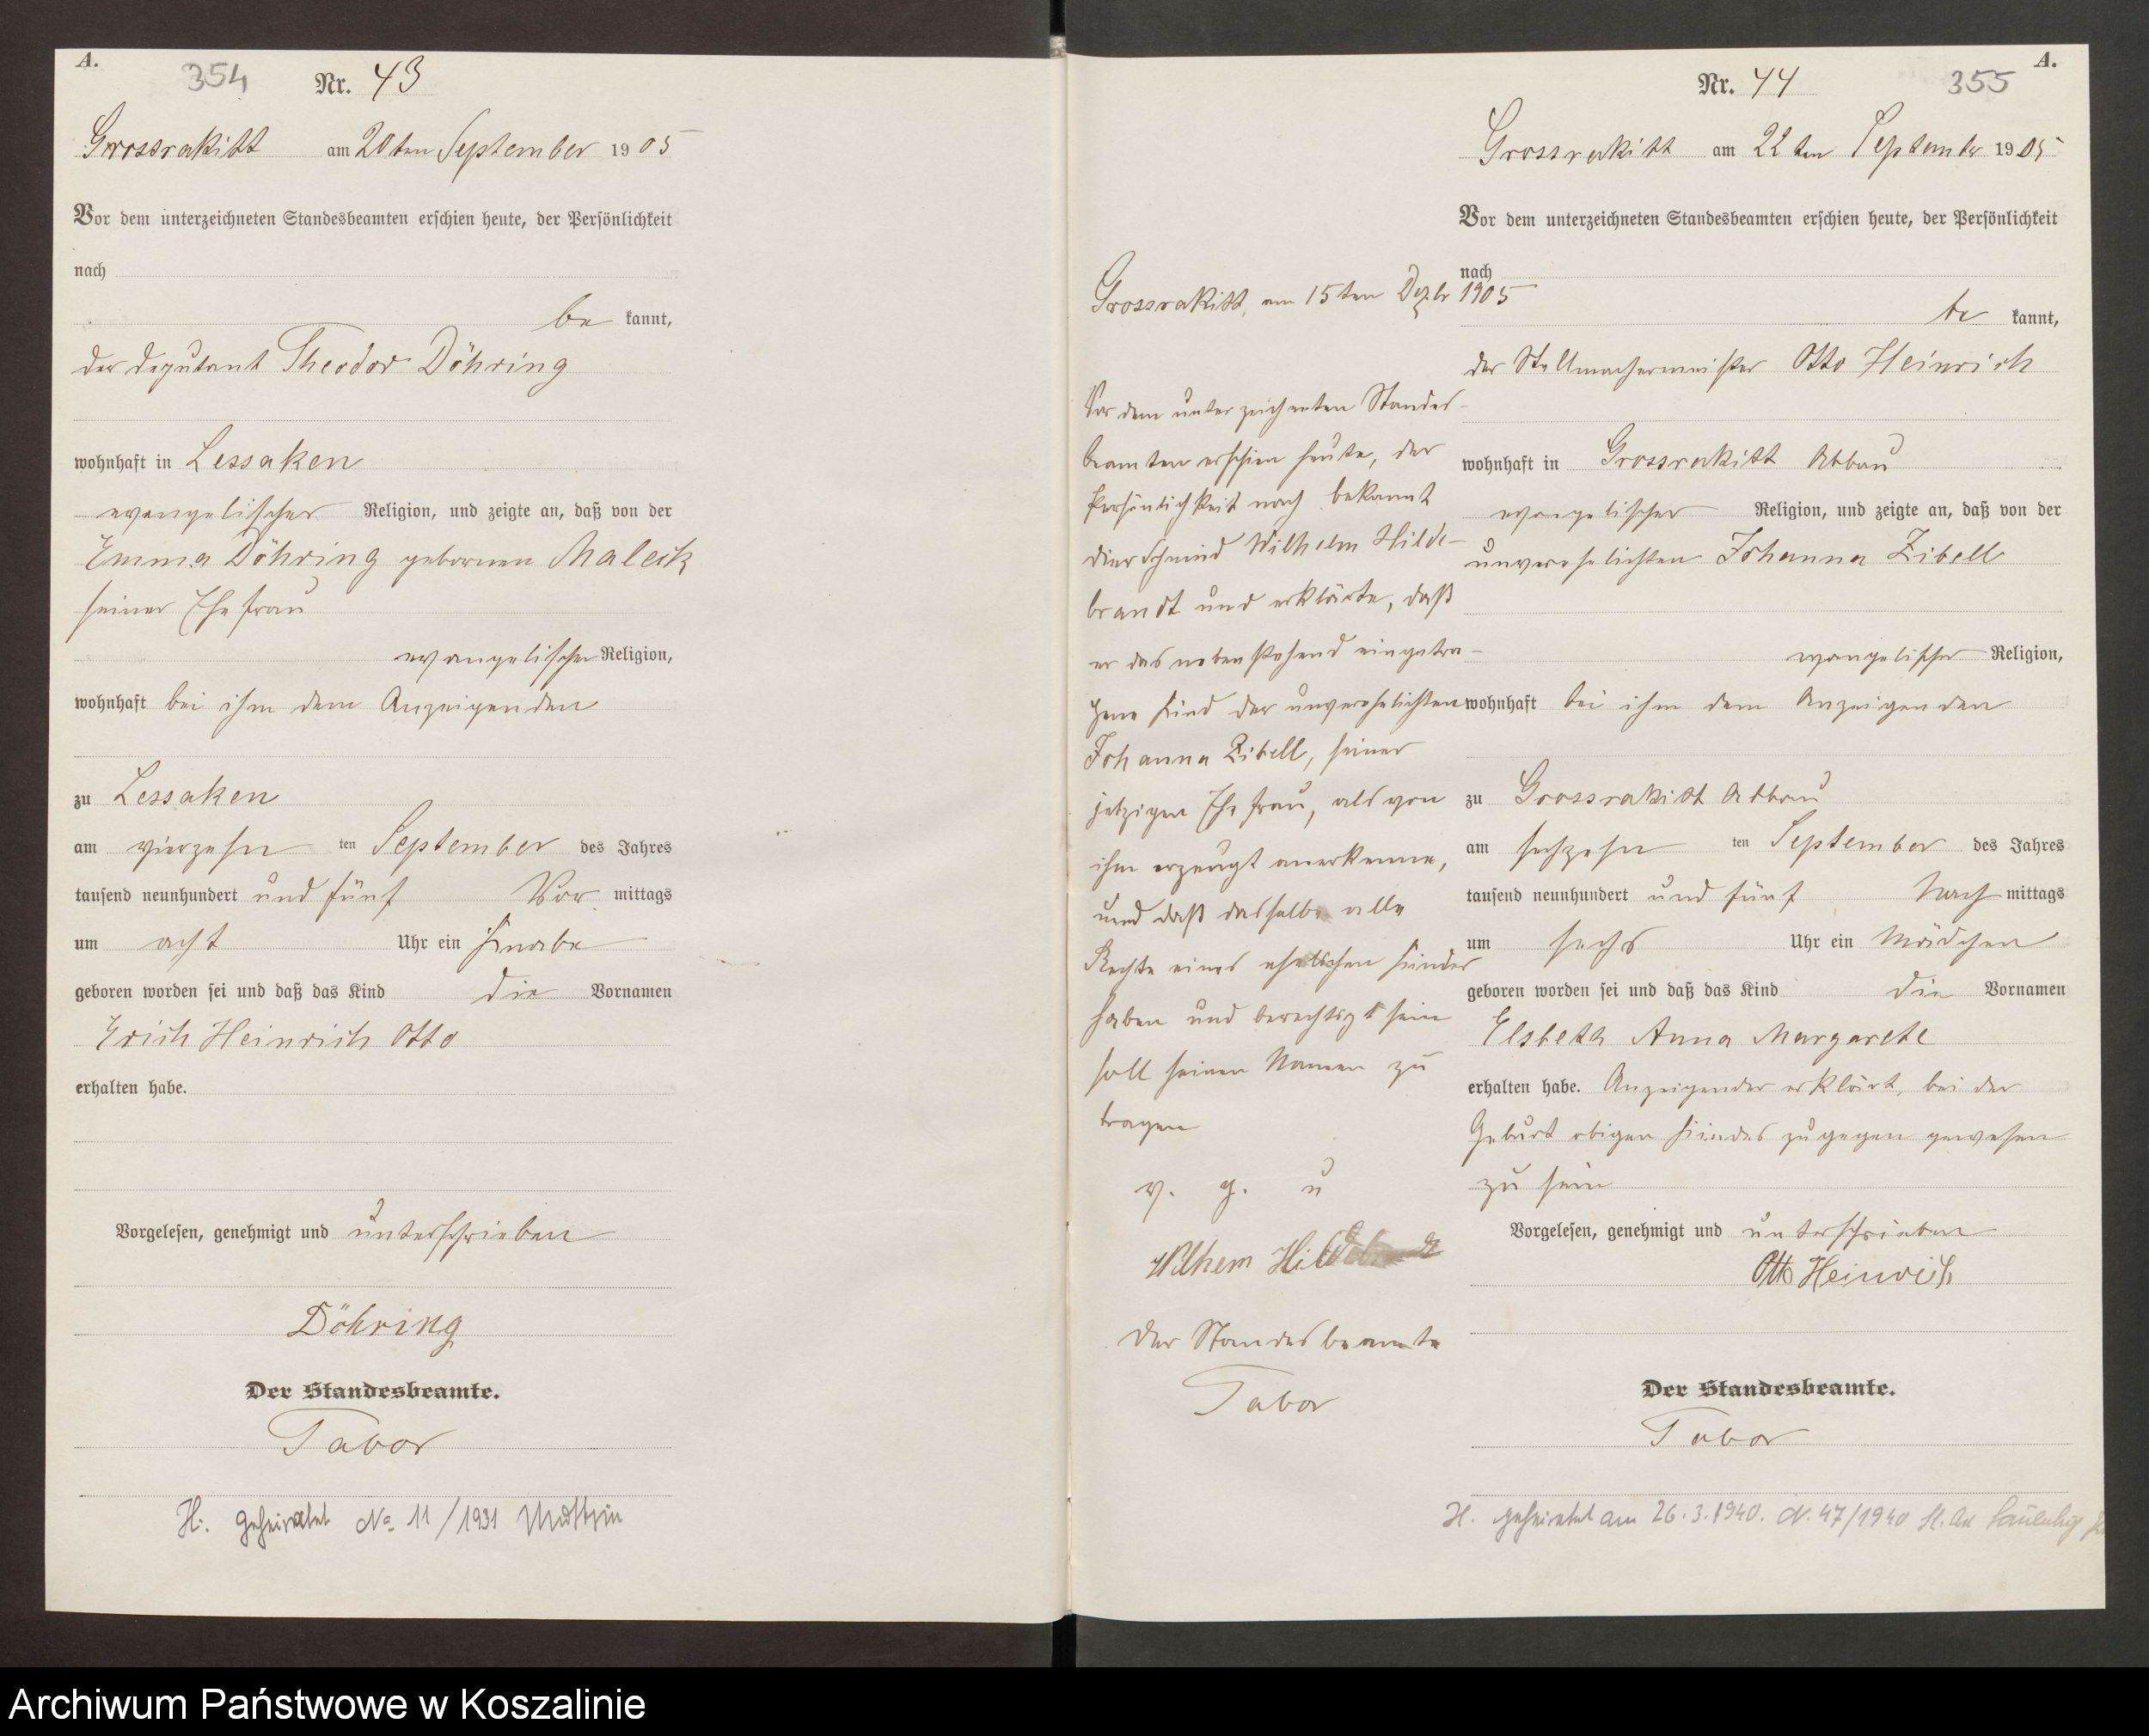 A.
354 Nr. 43
Grossrakitt am 20ten September 1905
Vor dem unterzeichneten Standesbeamten erschien heute, der Persönlichkeit
nach
be kannt,
der Deputant Theodor Döhring
wohnhaft in Lessaken
evangelischer Religion, und zeigte an, daß von der
Emma Döhring gebornen Maleck
seiner Ehefrau
evangelischer Religion,
wohnhaft bei ihm dem Anzeigenden
zu Lessaken
am vierzehn ten September des Jahres
tausend neunhundert und fünf Vor mittags
um acht Uhr ein Knabe
geboren worden sei und daß das Kind die Vornamen
Erich Heinrich Otto
erhalten habe.
Vorgelesen, genehmigt und unterschrieben
Döhring
Der Standesbeamte.
Tabor
H. geheiratet No 11/1931
Grossrakitt, am 15ten Dezbr 1905
Vor dem unterzeichneten Standes-
beamten erschien heute, der
Persönlichkeit nach bekannt
der Schmied Wilhelm Hilde-
brandt und erklärte, daß
er das nebenstehend eingetra-
gene Kind der unverehelichten
Johanna Zibell, seiner
jetzigen Ehefrau, als von
ihm erzeugt anerkenne,
und daß dasselbe alle
Rechte eines ehelichen Kindes
haben und berechtigt sein
soll seinen Namen zu
tragen
v. g. u
Wilhem
Der Standesbeamte
Tabor
A.
Nr. 44 355
Grossrakitt am 22ten September 1905
Vor dem unterzeichneten Standesbeamten erschien heute, der Persönlichkeit
nach
be kannt,
der Stellmachermeister Otto Heinrich
wohnhaft in Grossrakitt Abbau
evangelischer Religion, und zeigte an, daß von der
unverehelichten Johanna Zibell
evangelischer Religion,
wohnhaft bei ihm dem Anzeigenden
zu Grossrakitt Abbau
am sechzehn ten September des Jahres
tausend neunhundert und fünf Nach mittags
um sechs Uhr ein Mädchen
geboren worden sei und daß das Kind die Vornamen
Elsbeth Anna Margarete
erhalten habe. Anzeigender erklärt, bei der
Geburt obigen Kindes zugegen gewesen
zu sein
Vorgelesen, genehmigt und unterschrieben
Otto Heinrich
Der Standesbeamte.
Tabor
H. geheiratet am 26.3.1940. N. 47/1940
Archiwum Państwowe w Koszalinie